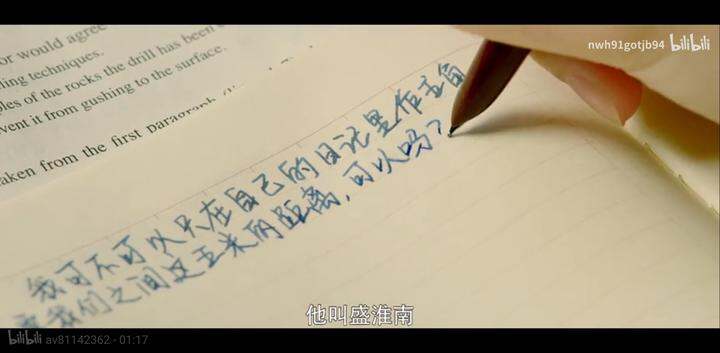 nwh91gotjb94 bilibili
or would agree
ing techniques.
ples of the rocks the drill has been
vent it from gushing to the surface.
aken from the first paragraph
我可不可以只在自己的日记里作主角
我们之间这五米的距离，可以吗？
他叫盛淮南
bilibili av81142362 - 01:17